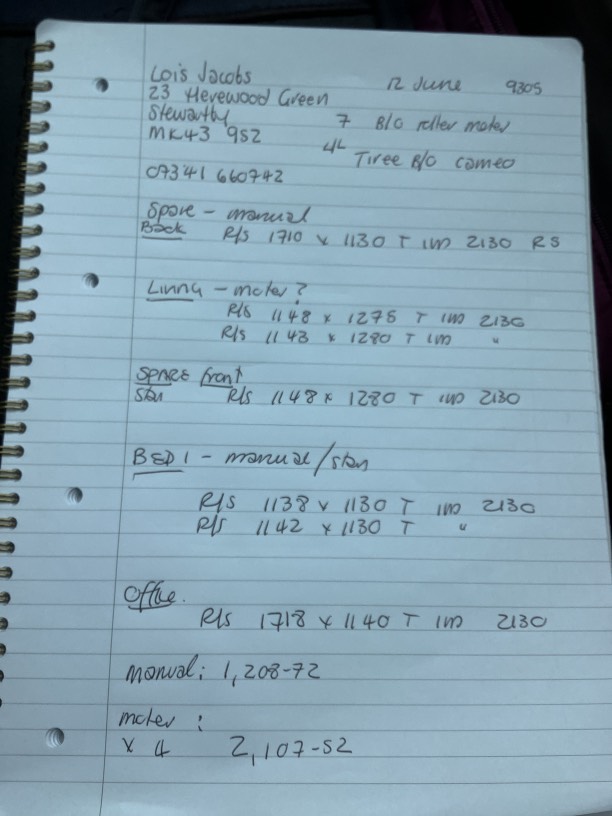 Lois Jacobs
12 June 9305
23 Herewood Green
Stewartby
7 B/O roller moter
MK43 9SZ
44 Tiree B/O cameo
07341 660742
Spare - manual
Back R/S 1710 x 1130 T IM 2130 RS
Living - moter?
R/S 1148 x 1275 T IM 2130
R/S 1143 x 1280 T IM "
SPARE front
Stan R/S 1148 x 1280 T IM 2130
BED 1 - manual/stan
R/S 1138 x 1130 T IM 2130
R/S 1142 x 1130 T "
Office.
R/S 1718 x 1140 T IM 2130
Manual: 1,208-72
moter :
x 4 2,107-52